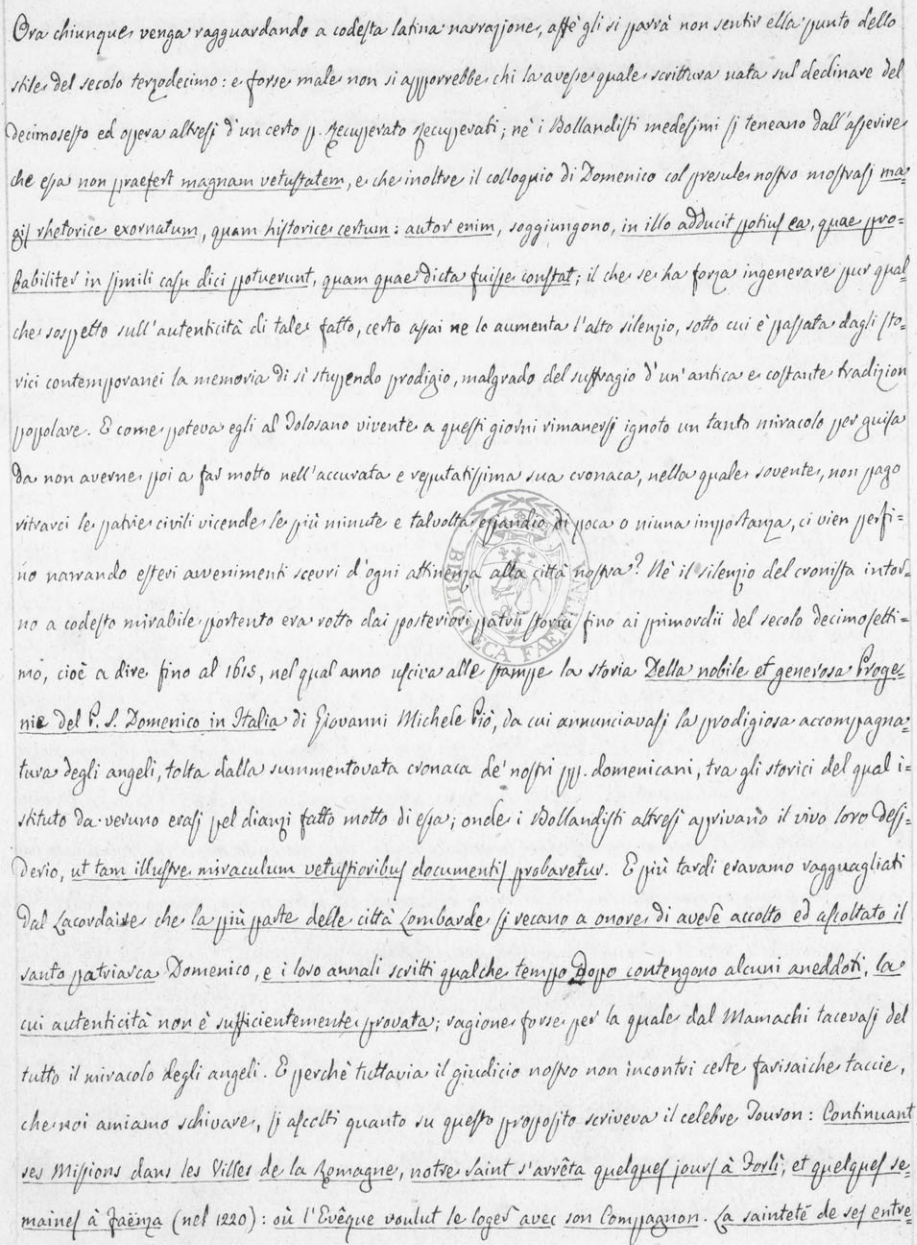 Ora chiunque venga ragguardando a codesta latina narrazione, affè gli si parrà non sentir ella punto dello
stile del secolo terzodecimo: e forse male non si apporrebbe chi la avesse quale scrittura nata sul declinare del
decimosesto ed opera altresì d'un certo p. Recuperato Recuperati; nè i Bollandisti medesimi si teneano dall'asserire
che essa non praefert magnam vetustatem, e che inoltre il colloquio di Domenico col presule nostro mostrasi ma
gis rhetorice exornatum, quam historice certum: autor enim, soggiungono, in illo adducit potius ea, quae pro=
babiliter in simili casu dici potuerunt, quam quae dicta fuisse constat; il che se ha forza ingenerare pur qual
che sospetto sull'autenticità di tale fatto, certo assai ne lo aumenta l'alto silenzio, sotto cui è passata dagli sto
rici contemporanei la memoria di sì stupendo prodigio, malgrado del suffragio d'un'antica e costante tradizion
popolare. E come poteva egli al Tolosano vivente a questi giorni rimanersi ignoto un tanto miracolo per guisa
da non averne poi a far motto nell'accurata e reputatissima sua cronaca, nella quale sovente, non pago
ritrarci le patrie civili vicende le più minute e talvolta eziandio di poca o niuna importanza, ci vien perfi=
no narrando esteri avvenimenti scevri d'ogni attinenza alla città nostra? Nè il silenzio del cronista intor=
no a codesto mirabile portento era rotto dai posteriori patrii storici fino ai primordii del secolo decimosetti=
mo, cioè a dire fino al 1615, nel qual anno usciva alle stampe la storia Della nobile et generosa Proge=
nie del P. S. Domenico in Italia di Giovanni Michele Piò, da cui annunciavasi la prodigiosa accompagna=
tura degli angeli, tolta dalla summentovata cronaca de' nostri pp. domenicani, tra gli storici del qual i=
stituto da veruno erasi pel dianzi fatto motto di essa; onde i Bollandisti altresì aprivano il vivo loro desi=
derio, ut tam illustre miraculum vetustioribus documentis probaretur. E più tardi eravamo ragguagliati
dal Lacordaire che la più parte delle città Lombarde si recano a onore di avere accolto ed ascoltato il
santo patriarca Domenico, e i loro annali scritti qualche tempo dopo contengono alcuni aneddoti, la
cui autenticità non è sufficientemente provata; ragione forse per la quale dal Mamachi tacevasi del
tutto il miracolo degli angeli. E perchè tuttavia il giudicio nostro non incontri certe farisaiche taccie,
che noi amiamo schivare, si ascolti quanto su questo proposito scriveva il celebre Touron: Continuant
ses Missions dans les Villes de la Romagne, notre saint s'arrêta quelques jours à Forlì, et quelques se=
maines à Faënza (nel 1220): où l'Evêque voulut le loger avec son Compagnon. La sainteté de ses entre
BIBLIOTECA FAENTINA